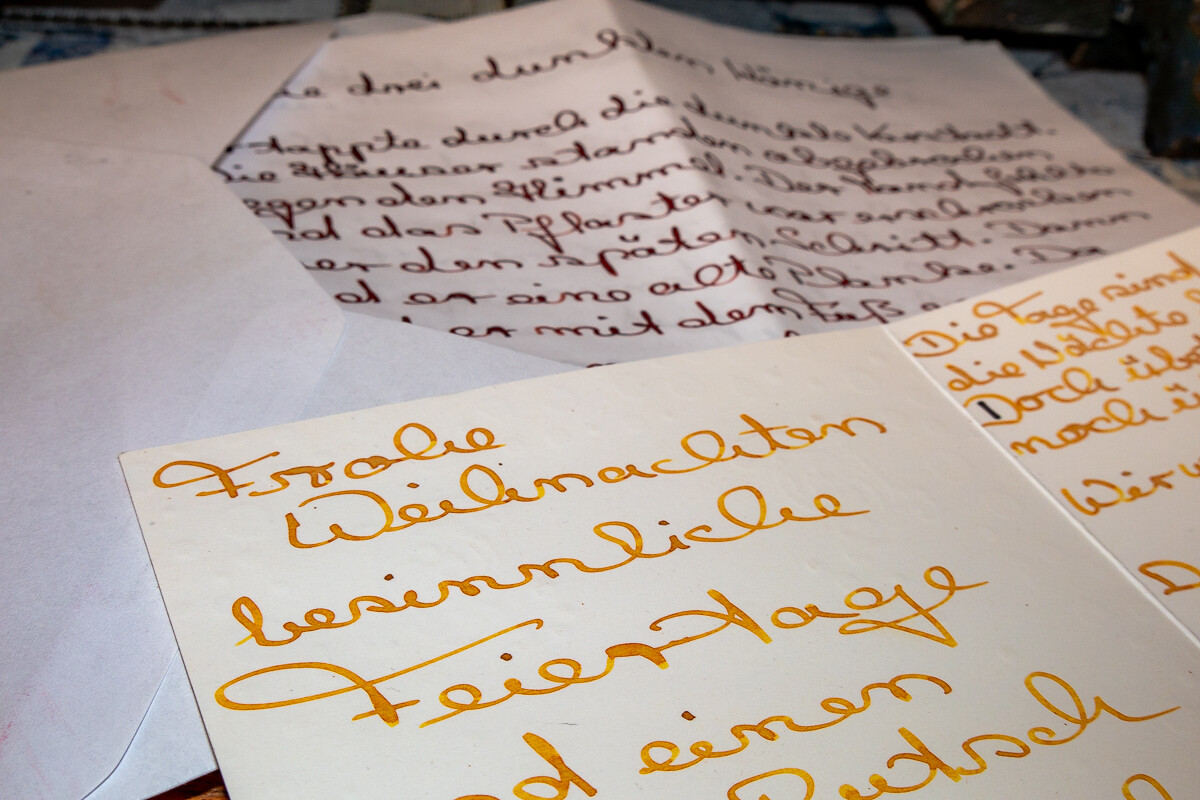 drei dunklen Könige
tappte durch die dunkle Vorstadt.
die Häuser standen abgebrochen
gegen den Himmel. Der Mond fehlte
das Pflaster war erschrocken
den späten Schritt. Dann
er eine alte Planke. Da
er mit dem Fuß
Frohe
Weihnachten
besinnliche
Feiertage
einen
Rutsch
Die Tage sind
die Nächte
Doch
noch
Wer